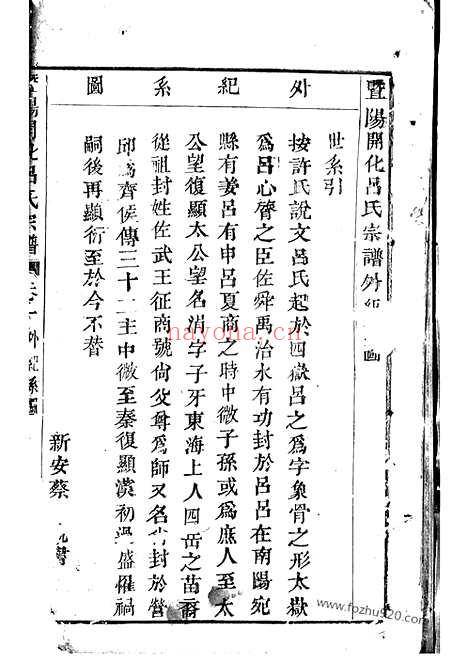 暨陽開化呂氏宗譜外紀
外紀系圖
世系引
按許氏說文呂氏起於四嶽呂之爲字象骨之形太嶽
爲呂心膂之臣佐舜禹治水有功封於呂呂在南陽宛
縣有姜呂有申呂夏商之時中微子孫或爲庶人至太
公望復顯太公望名涓字子牙東海上人四岳之苗裔
從祖封姓佐武王征商號尙父尊爲師又名尙封於營
邱爲齊侯傳三十二主中微至秦復顯漢初 盛罹禍
嗣後再顯衍至於今不替
新安蔡
暨陽開化呂氏宗譜 卷一 外紀系圖
nayona.cn
www.fozhu920.com